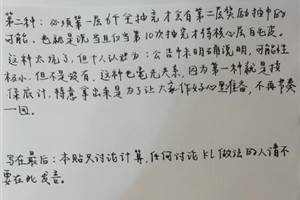 第二种：必须第一层6个全抽完才会有第二层奖励抽中的
可能。也就是说当且仅当第10次抽完才得核心层自毛皮。
这种太坑了，但个人认为：公告中未明确说明，可能性
极小，但不是没有，这种也毫无关系，因为第一种就是按
保底计，特意拿出来是为了让大家作好心里准备，不再带奏
一回。
写在最后：本贴只讨论计算，任何讨论KL做法的人请不
要在此发言。